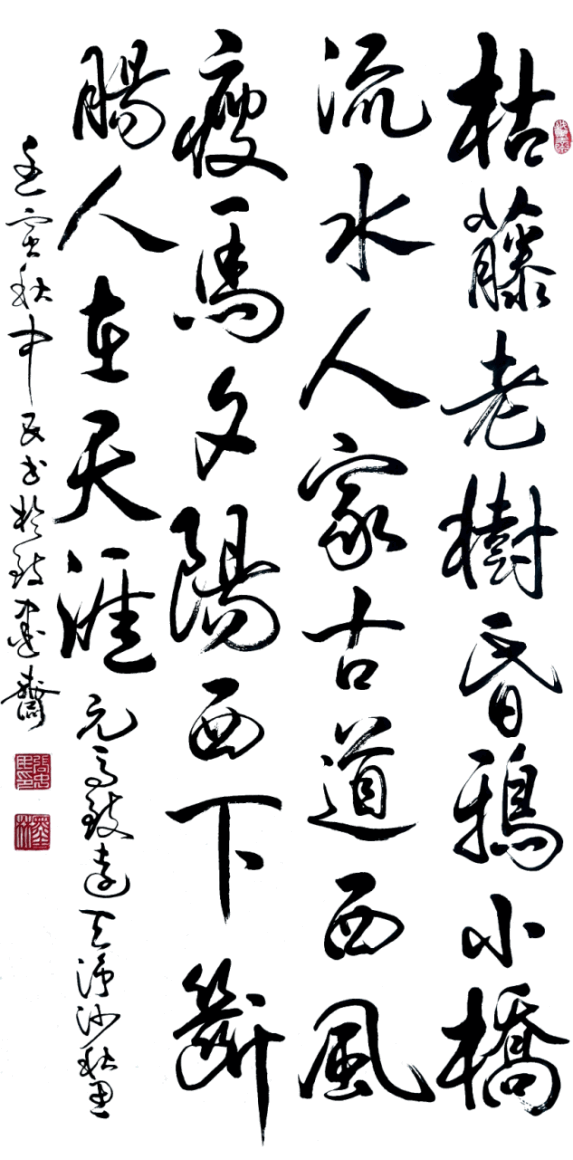 枯藤老樹昏鴉小橋
流水人家古道西風
瘦馬夕陽西下斷
腸人在天涯 元馬致遠天淨沙秋思
壬寅秋中民书於 齋